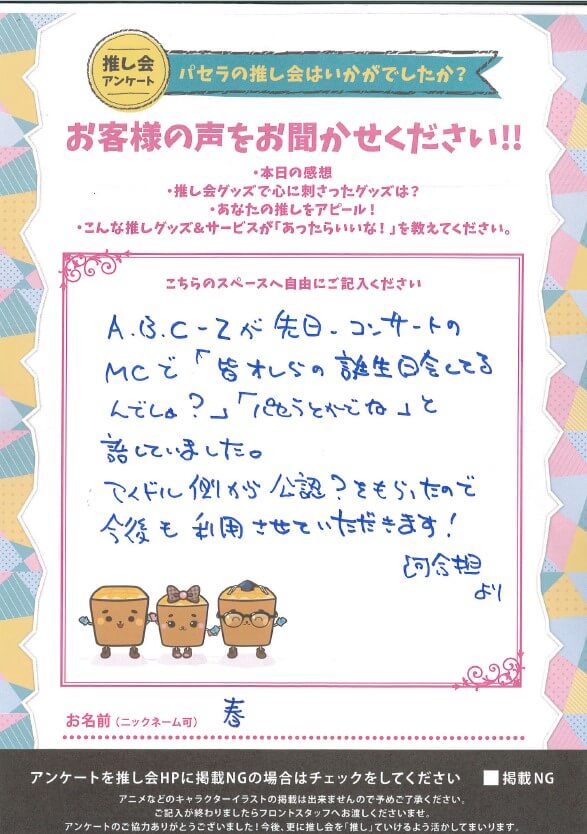 推し会
アンケート
パセラの推し会はいかがでしたか?
お客様の声をお聞かせください!!
・本日の感想
・推し会グッズで心に刺さったグッズは?
・あなたの推しをアピール!
・こんな推しグッズ&サービスが「あったらいいな!」を教えてください。
こちらのスペースへ自由にご記入ください
A.B.C-Zが先日、コンサートの
MCで「皆オレらの誕生日会してる
んでしょ?」「パセラとかでね」と
話していました。
アイドル側から公認?をもらったので
今後も利用させていただきます!
河合担
より
お名前(ニックネーム可) 春
アンケートを推し会HPに掲載NGの場合はチェックをしてください ■掲載NG
アニメなどのキャラクターイラストの掲載は出来ませんので予めご了承ください。
ご記入が終わりましたらフロントスタッフへお渡しくださいませ。
アンケートのご協力ありがとうございました!今後、更に推し会を「推し」ていけるよう活かしてまいります。